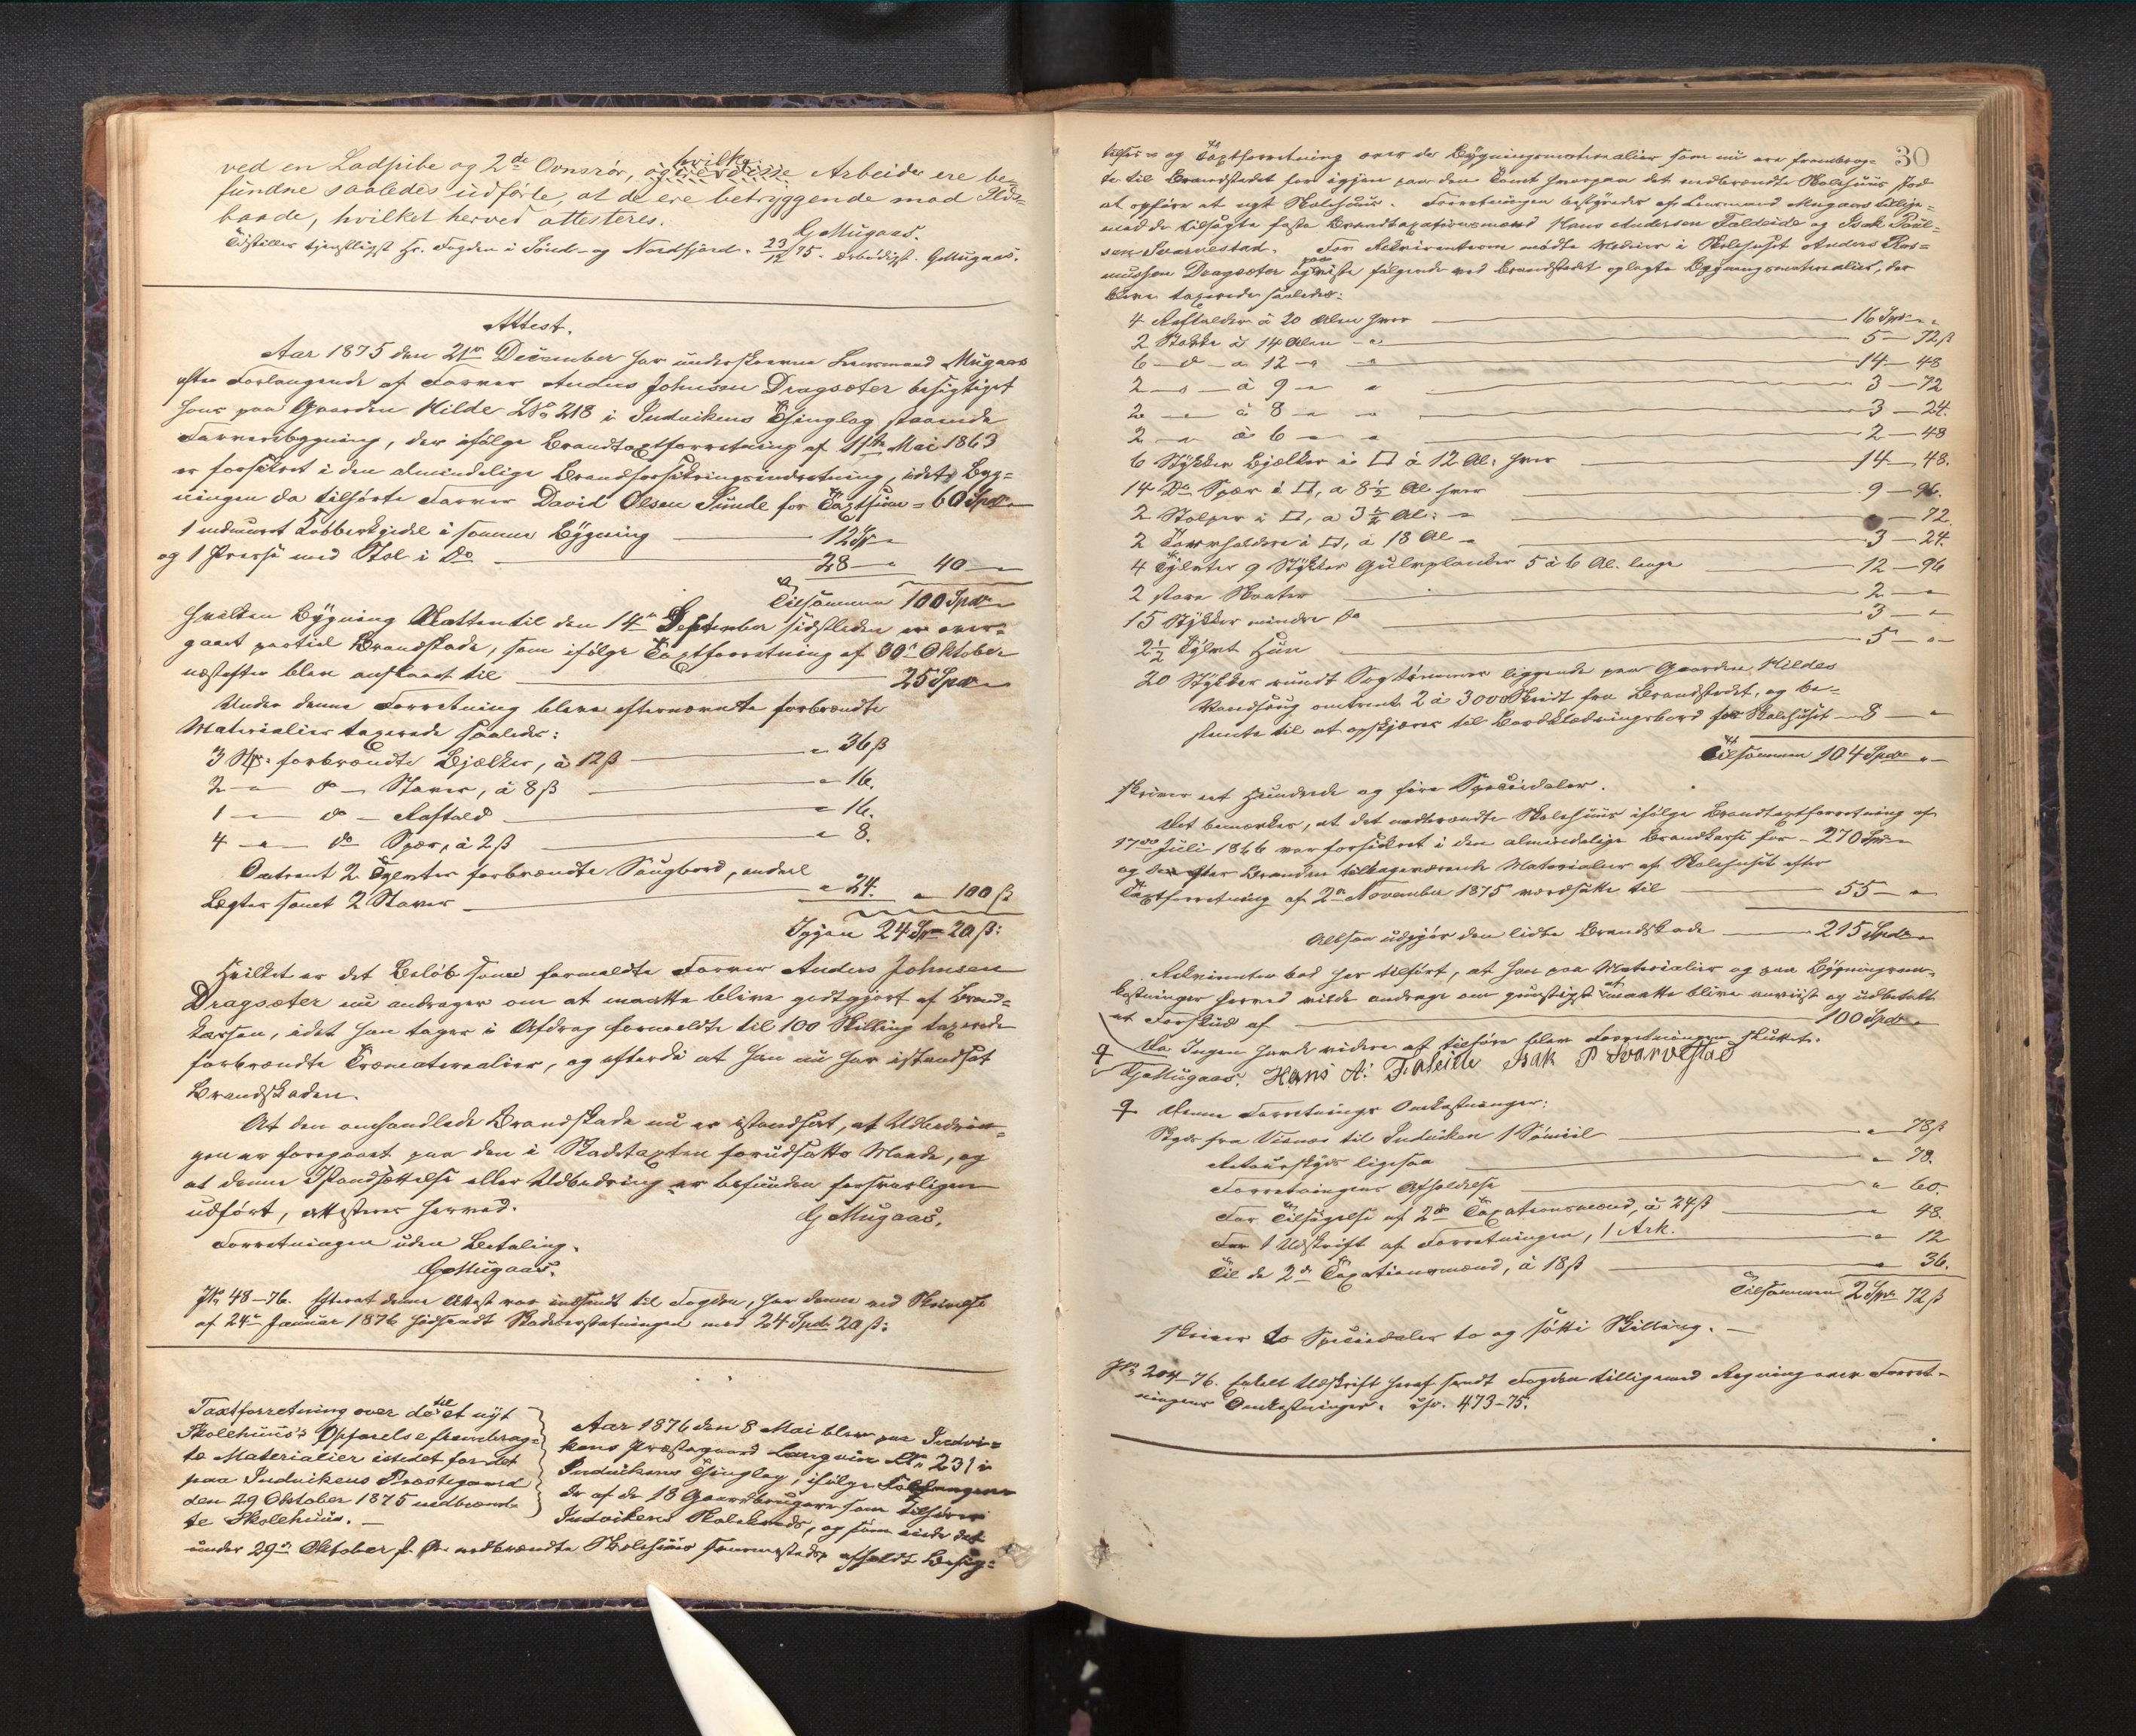 ved en Ladpibe og 2de Ovnsrør, hvilke Arbeider ere be-
fundne saaledes udførte, at de ere betryggende mod Ilds-
vaade, hvilket herved attesteres.
G Mugaas.
Tilstilles tjenstligst Hr. Fogden i Sønd- og Nordfjord. 23/12 75. Ærbødigst. G Mugaas.
Attest.
Aar 1875 den 21de December har underskrevne Lensmand Mugaas
efter Forlangende af Farver Anders Johnsen Dragsæter besigtiget
hans paa Gaarden Hilde LNo 218 i Indvikens Thinglag staaende
Farveribygning, der ifølge Brandtaxtforretning af 11te Mai 1863
er forsikret i den almindelige Brandforsikringsindretning, idet Byg-
ningen da tilhørte Farver David Olsen Sunde for Taxtsum = 60 Spd "
1 indmuret Kobberkjedel i samme Bygning 12 Sp "
og 1 Presse med Stol i Do 28 " 40 "
Tilsammen 100 Spd "
hvilken Bygning Natten til den 14de September sidstleden er over-
gaaet partiel Brandskade, som ifølge Taxtforretning af 30te Oktober
næstefter blev anslaaet til 25 Spd "
Under denne Forretning bleve efternævnte forbrændte
Materialier taxerede saaledes:
3 Stk. forbrændte Bjælker, à 12 ß " 36 ß
2 — do — Staver, à 8 ß " 16.
1 — do — Raftald " 16.
4 — do Spær, à 2 ß " 8.
Omtrent 2 Tylvter forbrændte Saugbord, endeel
Lægter samt 2 Staver " 24. " 100 ß
Igjen 24 Spd 20 ß:
Hvilket er det Beløb som formeldte Farver Anders Johnsen
Dragsæter nu andrager om at maatte blive godtgjort af Brand-
kassen, idet han tager i Afdrag formeldte til 100 Skilling taxerede
forbrændte Træmaterialier, og efterdi at han nu har istandsat
Brandskaden.
At den omhandlede Brandskade nu er istandsat, at Udbedrin-
gen er foregaaet paa den i Skadetaxten forudsatte Maade, og
at denne Istandsættelse eller Udbedring er befunden forsvarligen
udført, attesteres herved.
G Mugaas.
Forretningen uden Betaling.
G Mugaas.
JNo 48-76. Efterat denne Attest var indsendt til Fogden, har denne ved Skrivelse
af 24de Januar 1876 hidsendt Skadeerstatningen med 24 Spd. 20 ß:
Taxtforretning over de til et nyt
Skolehuus's Opførelse frembrag-
te Materialier istedet for det
paa Indvikens Præstegaard
den 29 Oktober 1875 nedbrænd-
te Skolehuus. —
Aar 1876 den 8 Mai blev paa Indvi-
kens Præstegaard LNo 231 i
Indvikens Thinglag, ifølge Forlangen-
de af de 18 Gaardbrugere som tilhører
Indvikens Skolekreds, og som eiede det
under 29de Oktober f. A. nedbrændte Skolehuus sammesteds, afholdt Besig-
30
telses- og Taxtforretning over de Bygningsmaterialier som nu ere frembrag-
te til Brandstedet for igjen paa den Tomt hvorpaa det nedbrændte Skolehuus stod
at opføre et nyt Skolehuus. Forretningen bestyredes af Lensmand Mugaas tillige-
med de tilsagte faste Brandtaxationsmænd Hans Andersen Faleide og Isak Poul-
sen Svarvestad. For Rekvirenterne mødte Medeier i Skolehuset Anders Ras-
mussen Dragsæter og paaviste følgende ved Brandstedet oplagte Bygningsmaterialier, der
bleve taxerede saaledes:
4 Raftalder à 20 Alen hver 16 Spd "
2 Stokke à 14 Alen " 5 — 72 ß
6 — do — à 12 — " 14 — 48
2 — " — à 9 — " 3 — 72
2 — " à 8 — " 3 — 24.
2 — " à 6 — " 2 — 48
6 Stykker Bjælker i □ à 12 Al: hver 14 — 48.
14 Do Spær i □, à 8½ Al hver 9 — 96.
2 Stolper i □, à 3½ Al: " — 72.
2 i □, à 18 Al " 3 — 24.
4 Tylvter 9 Stykker Gulvplanker 5 à 6 Al. lange 12 — 96
2 store 2 — "
15 Stykker mindre do 3 — "
2½ Tylvt Hun 5 — "
20 Stykker rundt Sagtømmer liggende paa Gaarden Hildes
Vandsaug omtrent 2 à 3000 Skridt fra Brandstedet, og be-
stemte til at opskjæres til Bordklædningsbord for Skolehuset — 8 — "
Tilsammen 104 Spd "
skriver eet Hundrede og fire Speciedaler.
Det bemærkes, at det nedbrændte Skolehuus ifølge Brandtaxtforretning af
17de Juli 1866 var forsikret i den almindelige Brandkasse for — 270 Spd "
og de efter Branden tilbageværende Materialier af Skolehuset efter
Taxtforretning af 2den November 1875 værdsatte til 55 — "
Altsaa udgjør den lidte Brandskade 215 Spd "
Rekvirenten bad her tilført, at han paa Materialier og paa Bygningsom-
kostninger herved vilde andrage om gunstigst at maatte blive anviist og udbetalt
et Forskud af 100 Spd "
Da Ingen havde videre at tilføre blev Forretningen sluttet.
G Mugaas. Hans A: Faleide Isak P Svarvestad
Denne Forretnings Omkostninger:
Skyds fra Visnæs til Indviken 1 Sømiil " 78 ß
Retourskyds ligesaa " 78.
Forretningens Afholdelse " 60.
For Tilsigelse af 2de Taxationsmænd, à 24 ß " 48.
For 1 Udskrift af Forretningen, 1 Ark. " 12
Til de 2de Taxationsmænd, à 18 ß " 36.
Tilsammen 2 Spd 72 ß
skriver to Speciedaler to og søtti Skilling. —
JNo 204-76. Udskrift heraf sendt Fogden tilligemed Regning over Forret-
ningens Omkostninger. cfr. 473-75.